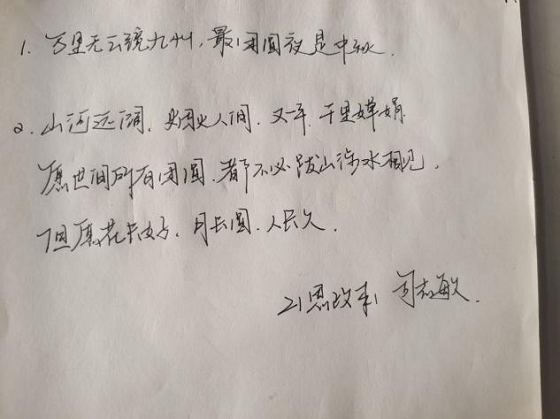 1. 万里无云镜九州，最团圆夜是中秋．
2. 山河远阔，烟火人间，又一年，千里婵娟
愿世间所有团圆，都不必跋山涉水相见，
但愿花长好．月长圆．人长久．
21思政